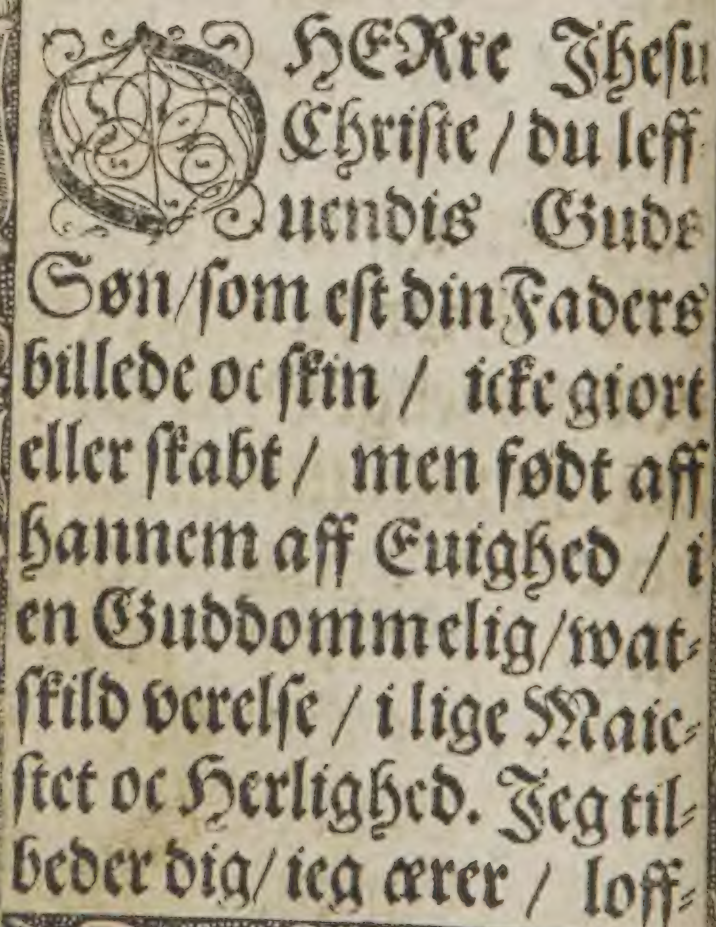 O HERre Jhesu
Christe / du leff
uendis Guds
Søn/som est din Faders
billede oc skin / icke giort
eller skabt / men født aff
hannem aff Euighed / i
en Guddommelig/wat-
skild verelse / i lige Maie-
stet oc Herlighed. Jeg til-
beder dig/ ieg ærer / loff-